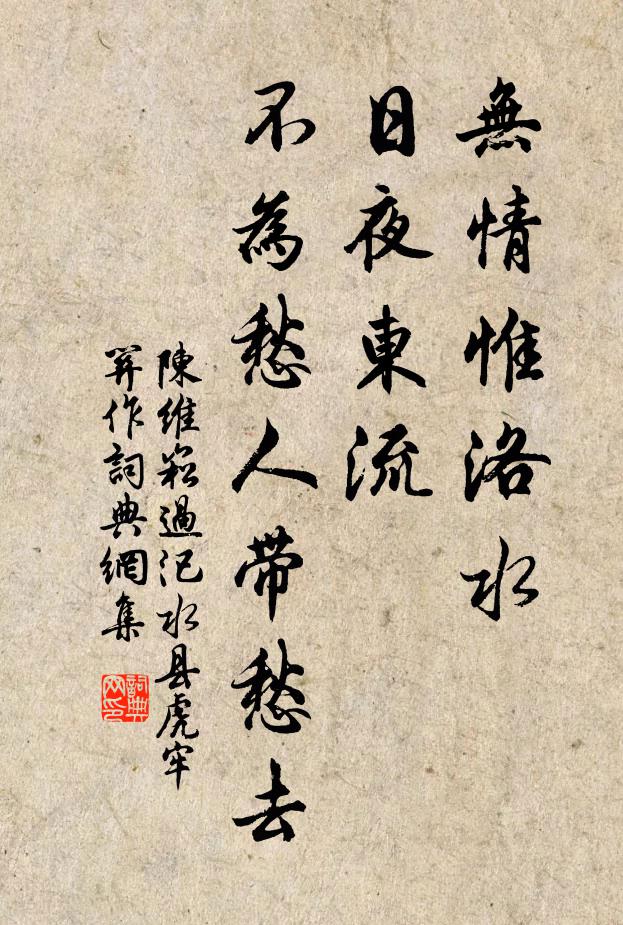 無情惟洛水
日夜東流
不為愁人帶愁去
陳維崧過汜水县虎牢
關作詞典網集
詞典
网印